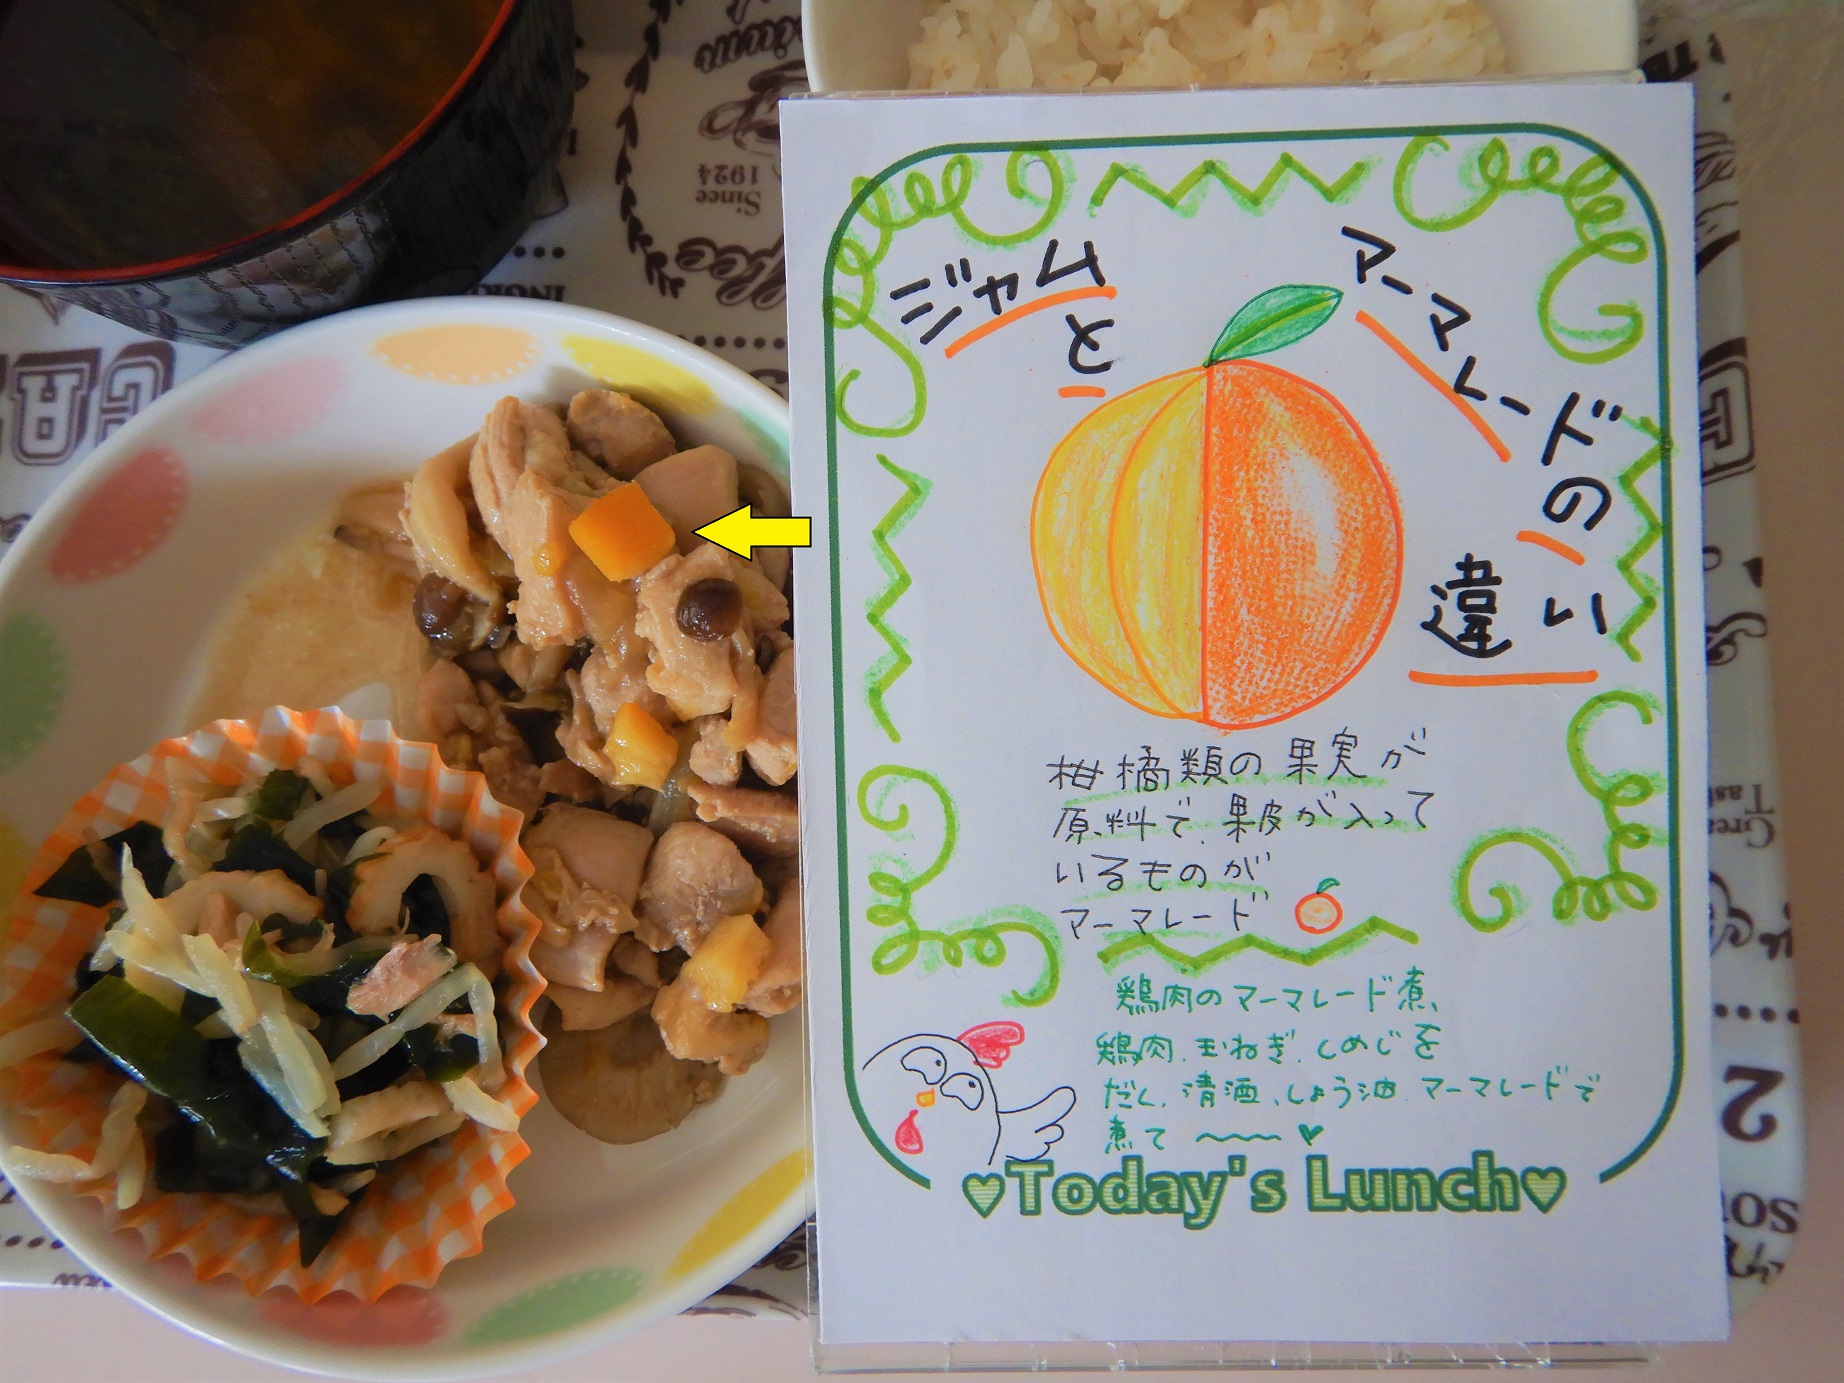 ジャム
と
マーマレードの
違い
柑橘類の果実が
原料で、果皮が入って
いるものが、
マーマレード
鶏肉のマーマレード煮
鶏肉、玉ねぎ、しめじを
だし、清酒、しょう油、マーマレードで
煮て〜〜♥
♥Today's Lunch♥
Since
1924
Coffee
2